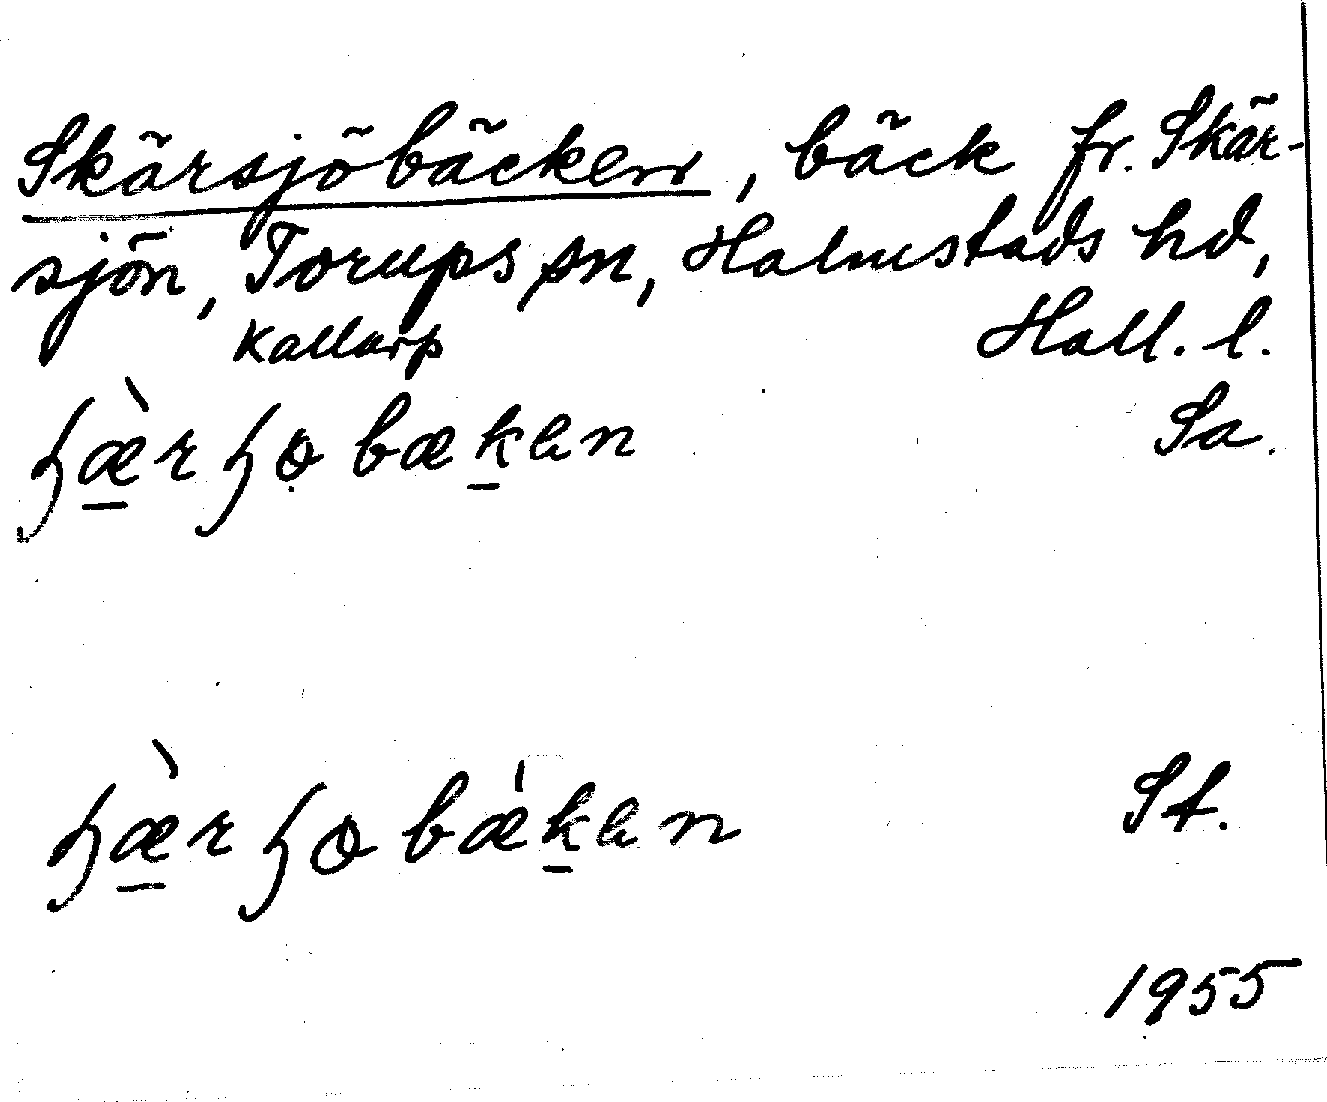 Skärsjöbäcken, bäck fr. Skär-
sjön, Torups sn, Halmstads hd,
Kallarp Hall. l.
ɧæ̠̀rɧọbæḵen Sa.
ɧæ̠̀rɧobæ̀ḵen St.
1955